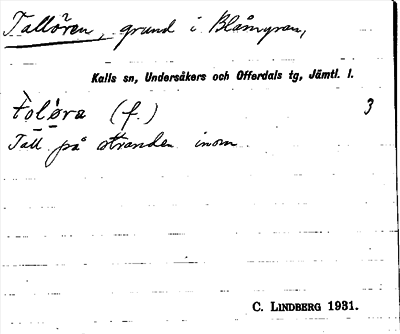 Tallören, grund i Blåmyran,
Kalls sn, Undersåkers och Offerdals tg, Jämtl. l.
tòl'øra (f.) 3
Tall på stranden inom
C. LINDBERG 1931.